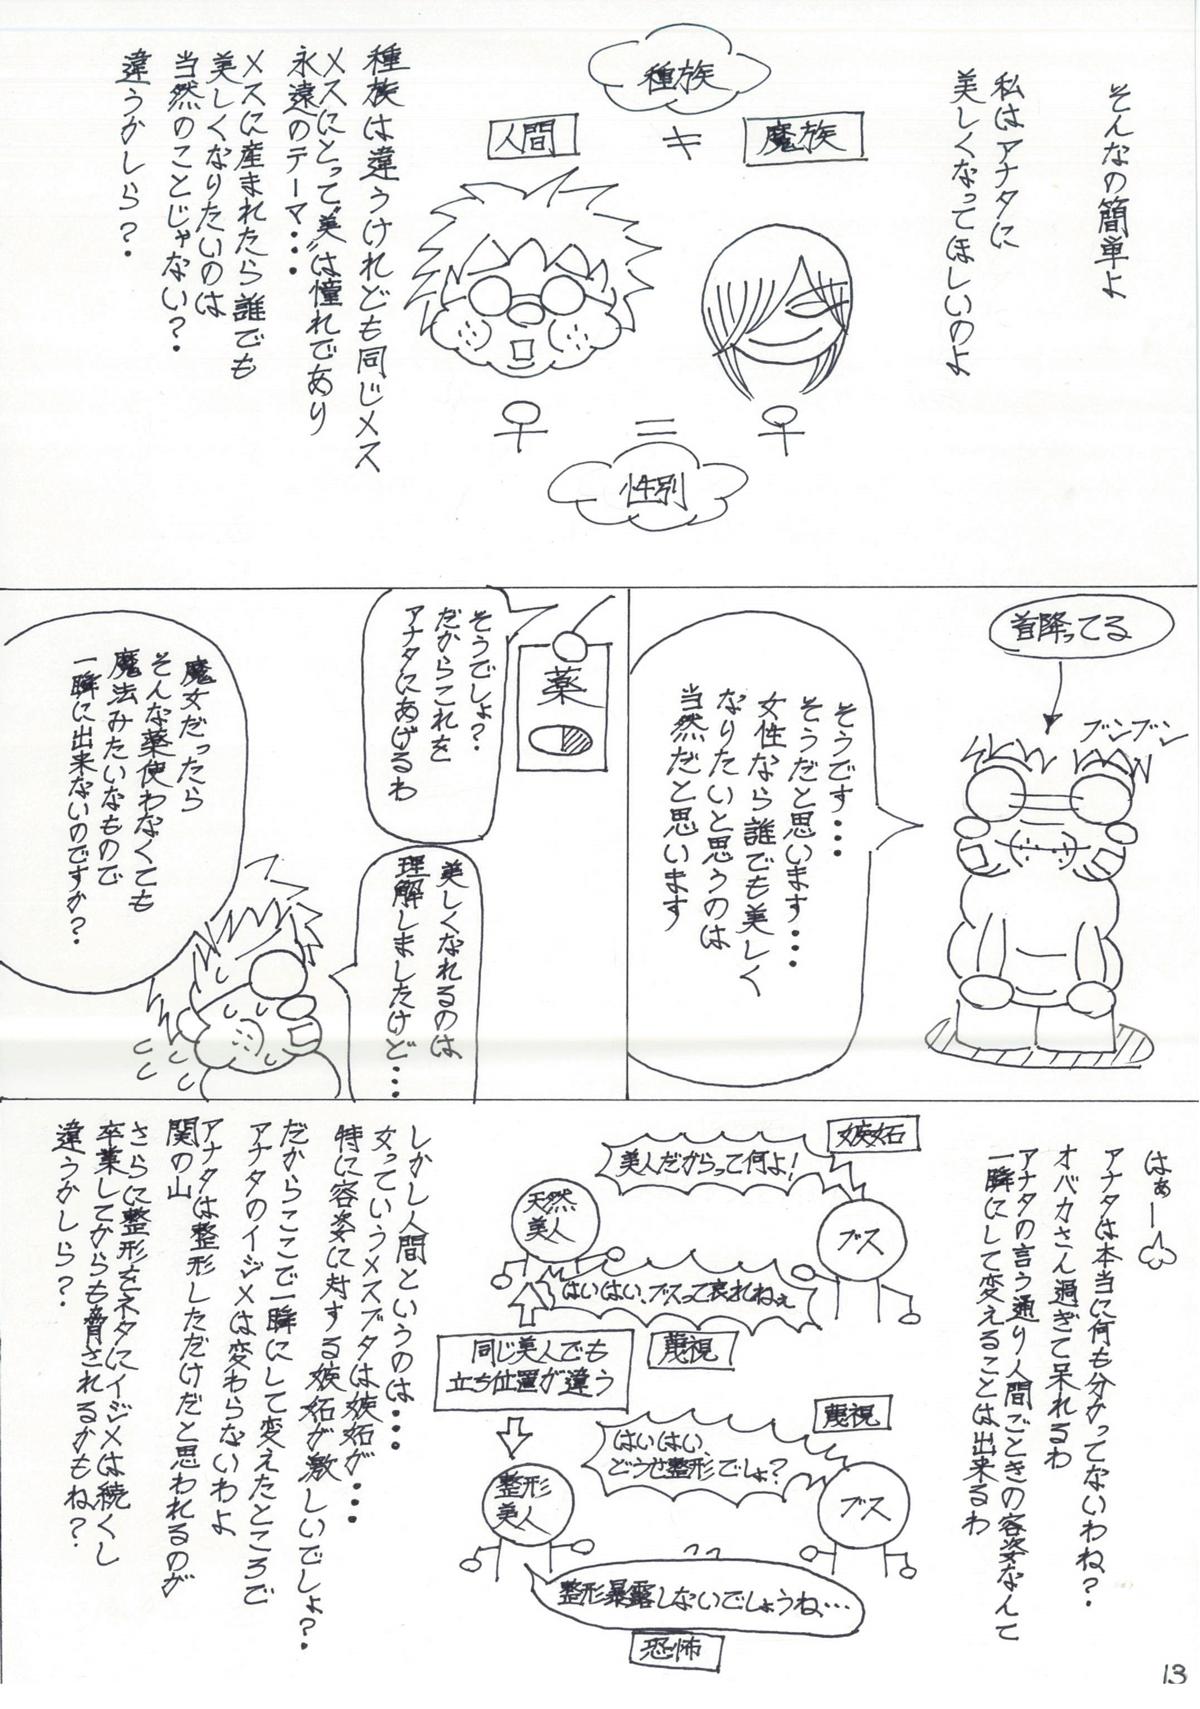 そんなの簡単よ
私はアナタに
美しくなってほしいのよ
種族
魔族
≠
人間
＝
性別
種族は違うけれども同じメス
メスにとって“美”は憧れであり
永遠のテーマ・・・
メスに産まれたら誰でも
美しくなりたいのは
当然のことじゃない？
違うかしら？
首降ってる
ブンブン
そうです・・・
そうだと思います・・・・
女性なら誰でも美しく
なりたいと思うのは
当然だと思います
薬
そうでしょ？
だからこれを
アナタにあげるわ
美しくなれるのは、
理解しましたけど・・・
魔女だったら
そんな薬使わなくても
魔法みたいなもので
一瞬に出来ないのですか？
はぁー
アナタは本当に何も分かってないわね？
オバカさん過ぎて呆れるわ
アナタの言う通り人間ごときの容姿なんて
一瞬にして変えることは出来るわ
嫉妬
美人だからって何よ！
天然
美人
ブス
はいはい、ブスって哀れねぇ
蔑視
同じ美人でも
立ち位置が違う
蔑視
はいはい、
どうせ整形でしょ？
整形
美人
ブス
整形暴露しないでしょうね・・・
恐怖
しかし人間というのは・・・・
女っていうメスブタは嫉妬が・・・
特に容姿に対する嫉妬が激しいでしょ？
だからここで一瞬にして変えたところで
アナタのイジメは変わらないわよ
アナタは整形しただけだと思われるのが
関の山
さらに整形をネタにイジメは続くし
卒業してからも脅されるかもね？
違うかしら？
13